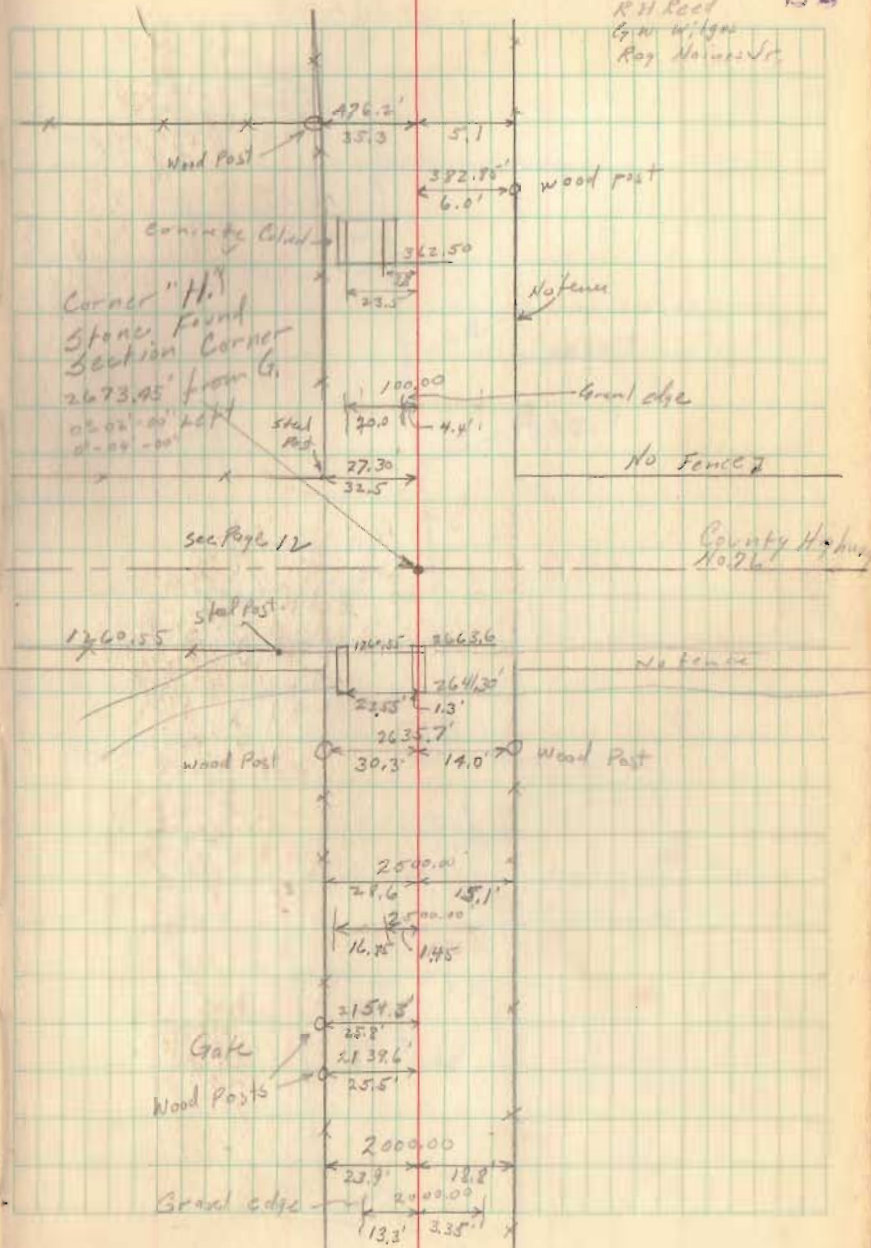 R H Reed
G W Wilgus
Roy Haines Jr.
476.2'
35.3
5.1
Wood Post
382.85'
6.0'
wood post
Concrete Culvert
362.50
23.5
No fence
Corner "H."
Stone Found
Section Corner
2673.45' from G.
0°-02'-00" Left
0°-04'-00"
100.00
20.0
4.4'
Gravel edge
Steel Post
27.30'
32.5
No Fence
see Page 12
County Highway
No. 26
Steel Post
1260.55
1260.55
2663.6
No fence
2641.30'
22.55'
1.3'
2635.7'
Wood Post
30.3'
14.0'
Wood Post
2500.00'
28.6
15.1'
2500.00'
16.75
1.45
2154.3'
25.8'
Gate
2139.6'
25.5'
Wood Posts
2000.00
23.9'
18.8'
Gravel edge
2000.00
13.3'
3.35'